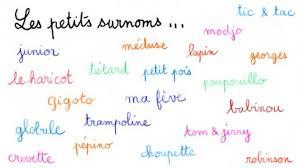 Les petits surnoms ...
tic & tac
modjo
junior
méduse
lapin
georges
le haricot
tétard
petit pois
poupouillo
gigoto
ma fève
babinou
globule
trampoline
tom & jerry
pépino
crevette
choupette
robinson